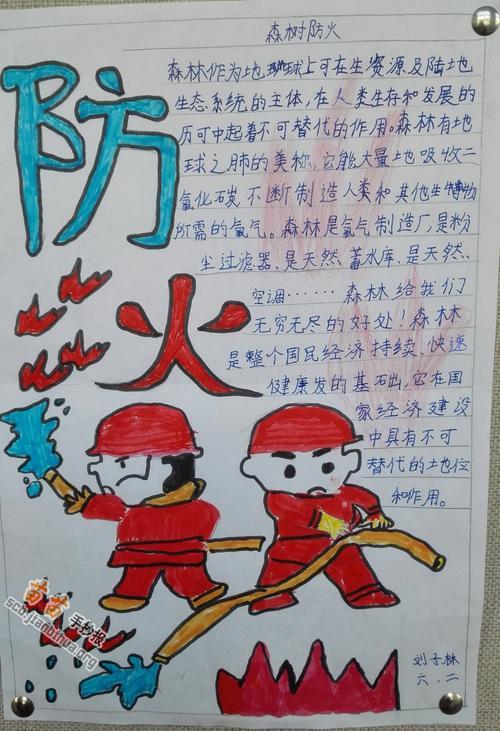 森树防火
防
火
森林作为地球上可在生资源及陆地
生态系统的主体，在人类生存和发展的
历可中起着不可替代的作用。森林有地
球之肺的美称，它能大量地吸收二
氧化石炭，不断制造人类和其他生物
所需的氧气。森林是氧气制造厂，是粉
尘过滤器、是天然、蓄水库、是天然、
空调……森林给我们
无穷无尽的好处！森林
是整个国民经济持续、快速
健康发的基础，它在国
家经济建设
中具有不可
替代的地位
和作用。
苗苗手抄报
scb.jianbihua.org
刘子林
六.二